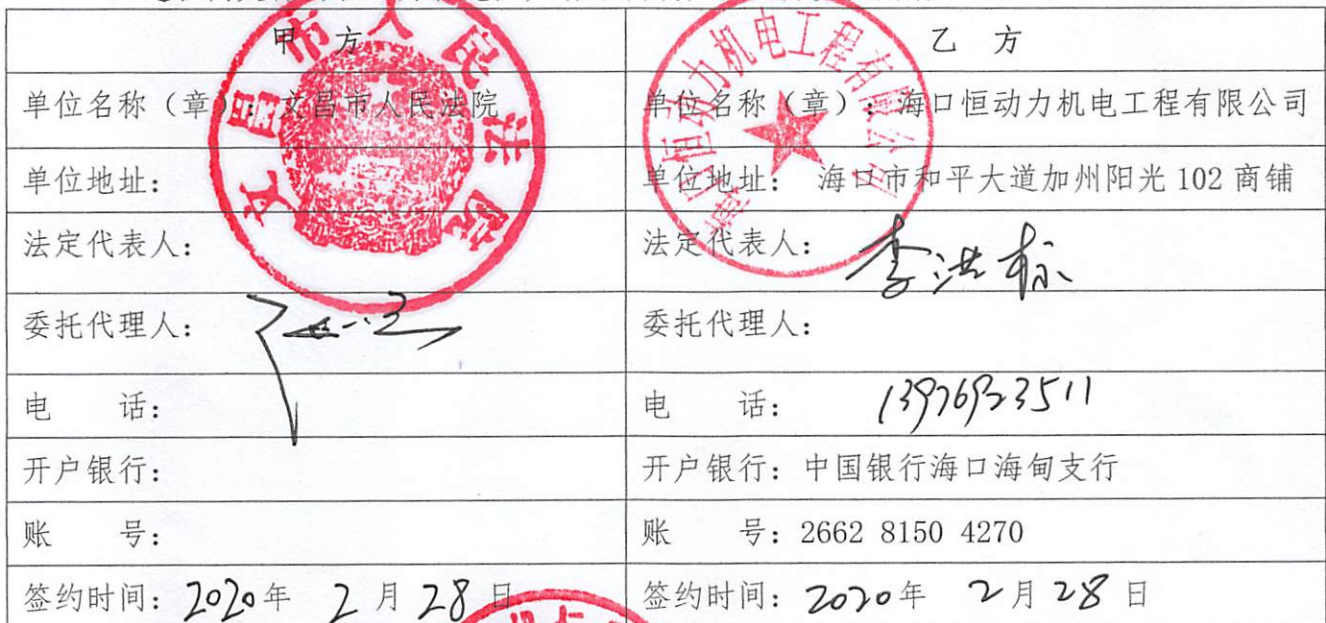 甲 方
乙 方
单位名称（章）：文昌市人民法院
单位名称（章）：海口恒动力机电工程有限公司
单位地址：
单位地址： 海口市和平大道加州阳光 102 商铺
法定代表人：
法定代表人： 李洪标
委托代理人：
委托代理人：
电 话：
电 话：
开户银行：
开户银行：中国银行海口海甸支行
账 号：
账 号：2662 8150 4270
签约时间：2020年 2月28日
签约时间：2020年 2月28日
文昌市人民法院
海口恒动力机电工程有限公司